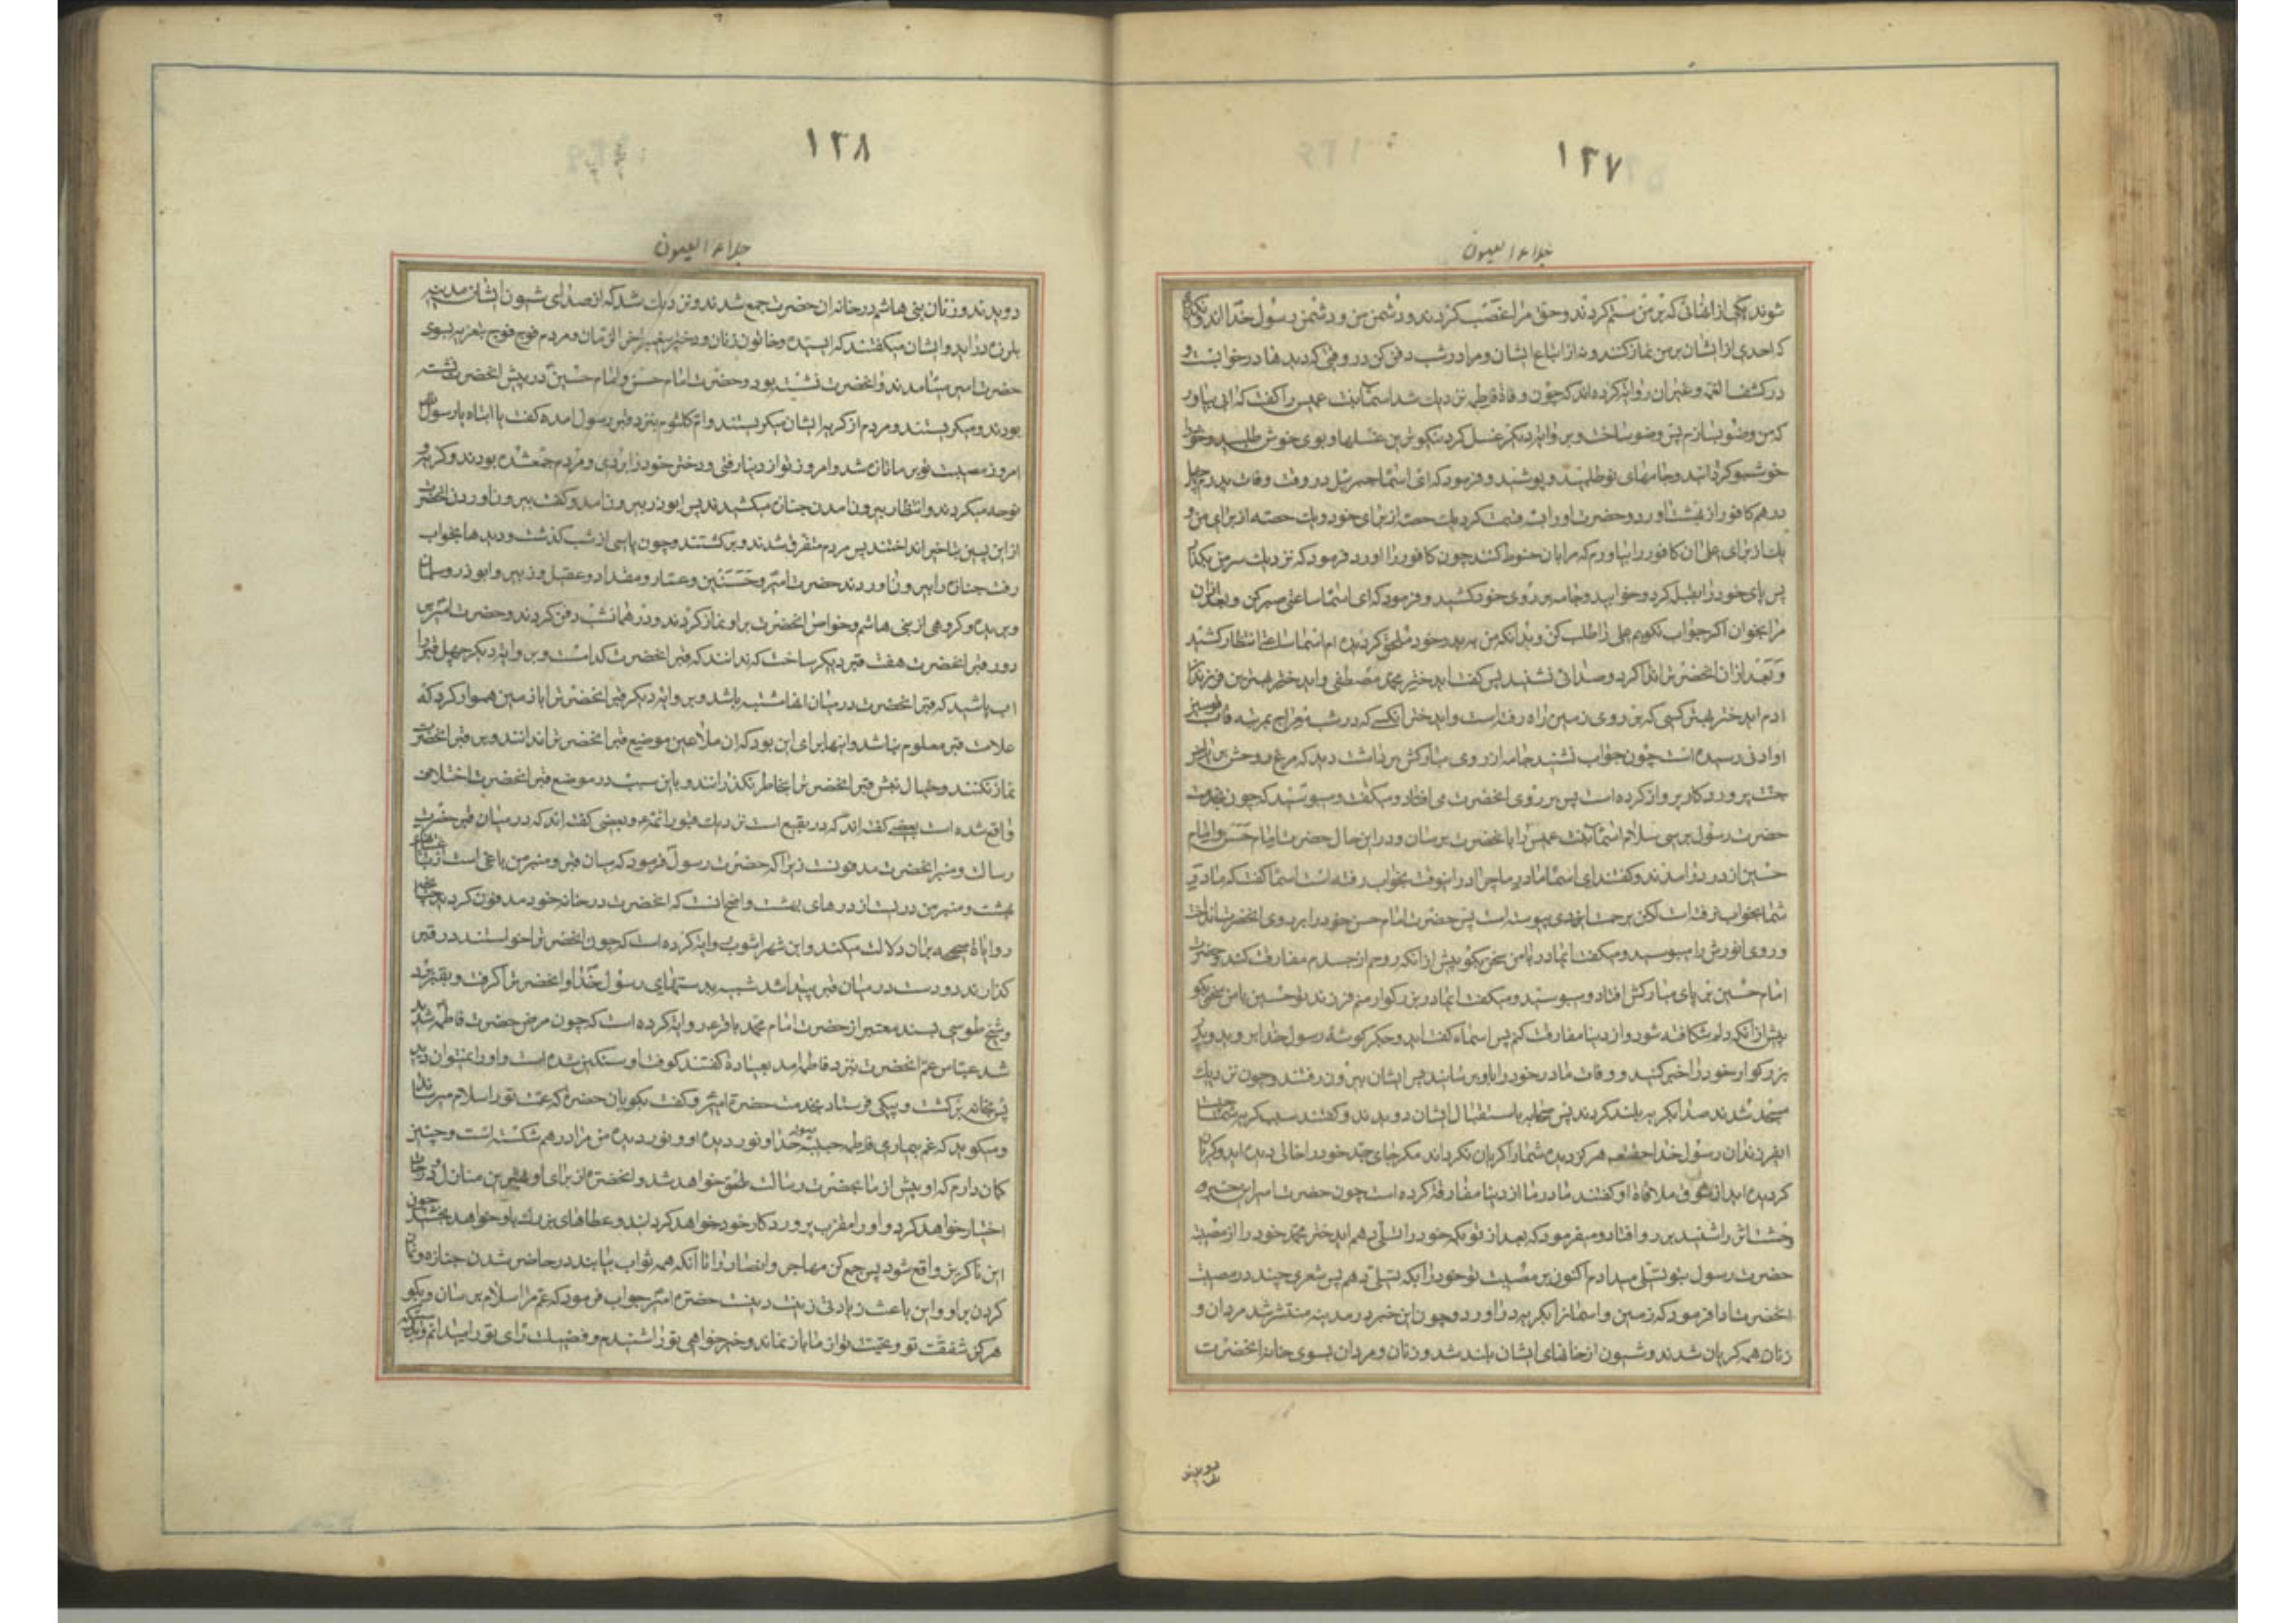 ۱۲۷
جلاء العیون
شوند یکی از انهائی که بر من ستم کردند و حق مرا غصب کردند و دشمن من و دشمن رسول خدا اند و نکذار
که احدی از ایشان بر من نماز کنند و نه از اتباع ایشان و مرا در شب دفن کن در وقتی که دیدها در خواب است و
در کشف الغمه و غیر ان روایت کرده اند که چون وفاة فاطمه نزدیک شد اسماء بنت عمیس را کفت که ابی بیاور
که من وضو بسازم پس وضو ساخت و بروایت دیکر غسل کرد نیکوترین غسلها و بوی خوش طلبید و خود را
خوشبو کردانید و جامهای نو طلبید و پوشید و فرمود که ای اسماء جبرئیل در وقت وفات پدرم چهل
درهم کافور از بهشت اورد و حضرت او را سه قسمت کرد یک حصه از برای خود و یک حصه از برای من و
یک از برای علی ان کافور را بیاور که مرا بان حنوط کنند چون کافور را اورد فرمود که نزدیک سر من بکذار
پس پای خود را بقبله کرد و خوابید و جامه بر روی خود کشید و فرمود که ای اسماء ساعتی صبر کن و بعد از ان
مرا بخوان اکر جواب نکویم علی را طلب کن و بدانکه من به پدر خود ملحق کردیده ام اسماء ساعتی انتظار کشید
و بعد از ان انحضرت را ندا کرد و صدائی نشنید پس کفت ای دختر محمد مصطفی و ای دختر بهترین فرزندان
ادم ای دختر بهتر کسی که بر روی زمین راه رفته است و ای دختر انکسی که در شب معراج بمرتبه قاب قوسین
او ادنی رسیده است چون جواب نشنید جامه از روی مبارکش برداشت دید که مرغ روحش بریاض
جنت پرورد کار پرواز کرده است پس بر روی انحضرت می افتاد و میکفت و میبوسید که چون بخدمت
حضرت رسول برسی سلام اسماء بنت عمیس را بانحضرت برسان و در این حال حضرت امام حسن و امام
حسین از در درامدند و کفتند ای اسماء مادر ما چرا در اینوقت بخواب رفته است اسماء کفت که مادر
شما بخواب نرفته است لکن برحمت ایزدی پیوسته است پس حضرت امام حسن خود را بر روی انحضرت انداخت
و روی انورش را میبوسید و میکفت ایمادر با من سخن بکو پیش از انکه روحم از جسدم مفارقت کند و حضرت
امام حسین بر پای مبارکش افتاد و میبوسید و میکفت ایمادر بزرکوار منم فرزند تو حسین با من سخن بکو
پیش از انکه دلم شکافته شود و از دنیا مفارقت کنم پس اسماء کفت ای دو جکر کوشهٔ رسول خدا بروید و پدر
بزرکوار خود را خبر کنید و وفات مادر خود را باو برسانید پس ایشان بیرون رفتند و چون نزدیک
مسجد شدند صدا بکریه بلند کردند پس صحابه باستقبال ایشان دویدند و کفتند سبب کریه شما چیست
ایفرزندان رسول خدا هرکز دیده شما را کریان نکرداند مکر جای جد خود را خالی دیده اید و کریان
کردیده اید از شوق ملاقاة او کفتند مادر ما از دنیا مفارقت کرده است چون حضرت امیر این خبر
وحشت اثر را شنید بر رو افتاد و میفرمود که بعد از تو بکه خود را تسلی دهم ای دختر محمد خود را از مصیبت
حضرت رسول بتو تسلی میدادم اکنون بر مصیبت تو خود را بکه تسلی دهم پس شعری چند در مصیبت
انحضرت ادا فرمود که زمین و اسمان را بکریه دراورد و چون این خبر در مدینه منتشر شد مردان و
زنان همه کریان شدند و شیون از خانهای ایشان بلند شد و زنان و مردان بسوی خانه انحضرت
دویدند
۱۲۸
جلاء العیون
دویدند و زنان بنی هاشم در خانه ان حضرت جمع شدند و نزدیک شد که از صدای شیون ایشان مدینه
بلرزه دراید و ایشان میکفتند که ای سیده و خاتون زنان و دختر پیغمبر اخر الزمان و مردم فوج فوج بتعزیه بسوی
حضرت امیر میامدند و انحضرت نشسته بود و حضرت امام حسن و امام حسین در پیش انحضرت نشسته
بودند و میکریستند و مردم از کریه ایشان میکریستند و ام کلثوم بنزد قبر رسول امده کفت یا ابتاه یا رسول الله
امروز مصیبت تو بر ما تازه شد و امروز تو از دنیا رفتی و دختر خود را بردی و مردم جمع شده بودند و کریه و
نوحه میکردند و انتظار بیرون امدن جنازه میکشیدند پس ابوذر بیرون امد و کفت بیرون اوردن انحضرت
از این پسین بتاخیر انداختند پس مردم متفرق شدند و برکشتند و چون پاسی از شب کذشت و دیدها بخواب
رفت جنازه را بیرون اوردند حضرت امیر و حسنین و عمار و مقداد و عقیل و زبیر و ابوذر و سلمان
و بریده و کروهی از بنی هاشم و خواص انحضرت بر او نماز کردند و در همانشب دفن کردند و حضرت امیر بر
دور قبر انحضرت هفت قبر دیکر ساخت که ندانند که قبر انحضرت کدام است و بروایت دیکر چهل قبر را
اب پاشید که قبر انحضرت در میان انها مشتبه باشد و بروایت دیکر قبر انحضرت را با زمین هموار کرد که
علامت قبر معلوم نباشد و اینها برای این بود که ان ملاعین موضع قبر انحضرت را ندانند و بر قبر انحضرت
نماز نکنند و خیال نبش قبر انحضرت را بخاطر نکذرانند و باین سبب در موضع قبر انحضرت اختلاف
واقع شده است بعضی کفته اند که در بقیع است نزدیک قبور ائمه و بعضی کفته اند که در میان قبر حضرت
رسالت و منبر انحضرت مدفونست زیرا که حضرت رسول فرمود که میان قبر و منبر من باغی است از باغهای
بهشت و منبر من دریست از درهای بهشت و اصح انست که انحضرت در خانه خود مدفون کردید چنانچه
روایات صحیحه بران دلالت میکند و ابن شهر اشوب روایت کرده است که چون انحضرت را خواستند در قبر
کذارند دو دست در میان قبر پیدا شد شبیه بدستهای رسول خدا و انحضرت را کرفت و بقبر برد
و شیخ طوسی بسند معتبر از حضرت امام محمد باقر ع روایت کرده است که چون مرض حضرت فاطمه شدید
شد عباس عم انحضرت بنزد فاطمه امد بعیادة کفتند کوفت او سنکین شده است و او را نمیتوان دید
پس بخانه برکشت و پیکی فرستاد بخدمت حضرت امیر و کفت بکو بان حضرت که عمت تو را سلام میرساند
و میکوید که غم بیماری فاطمه حبیبه رسول خدا و نور دیده او و نور دیده من مرا در هم شکسته است و چنین
کمان دارم که او پیش از ما بحضرت رسالت ملحق خواهد شد و انحضرت از برای او بهترین منازل و درجات
اختیار خواهد کرد و او را مقرب پرورد کار خود خواهد کردانید و عطاهای بزرک باو خواهد بخشید چون
این ناکریز واقع شود پس جمع کن مهاجر و انصار را تا انکه همه ثواب بیابند در حاضر شدن جنازه و نماز
کردن بر او و این باعث زیادتی زینت دینست حضرت امیر جواب فرمود که عم مرا سلام برسان و بکو
هرکز شفقت تو و محبت تو از ما باز نماند و خیرخواهی تو را شنیدم و فضیلت رای تو را میدانم